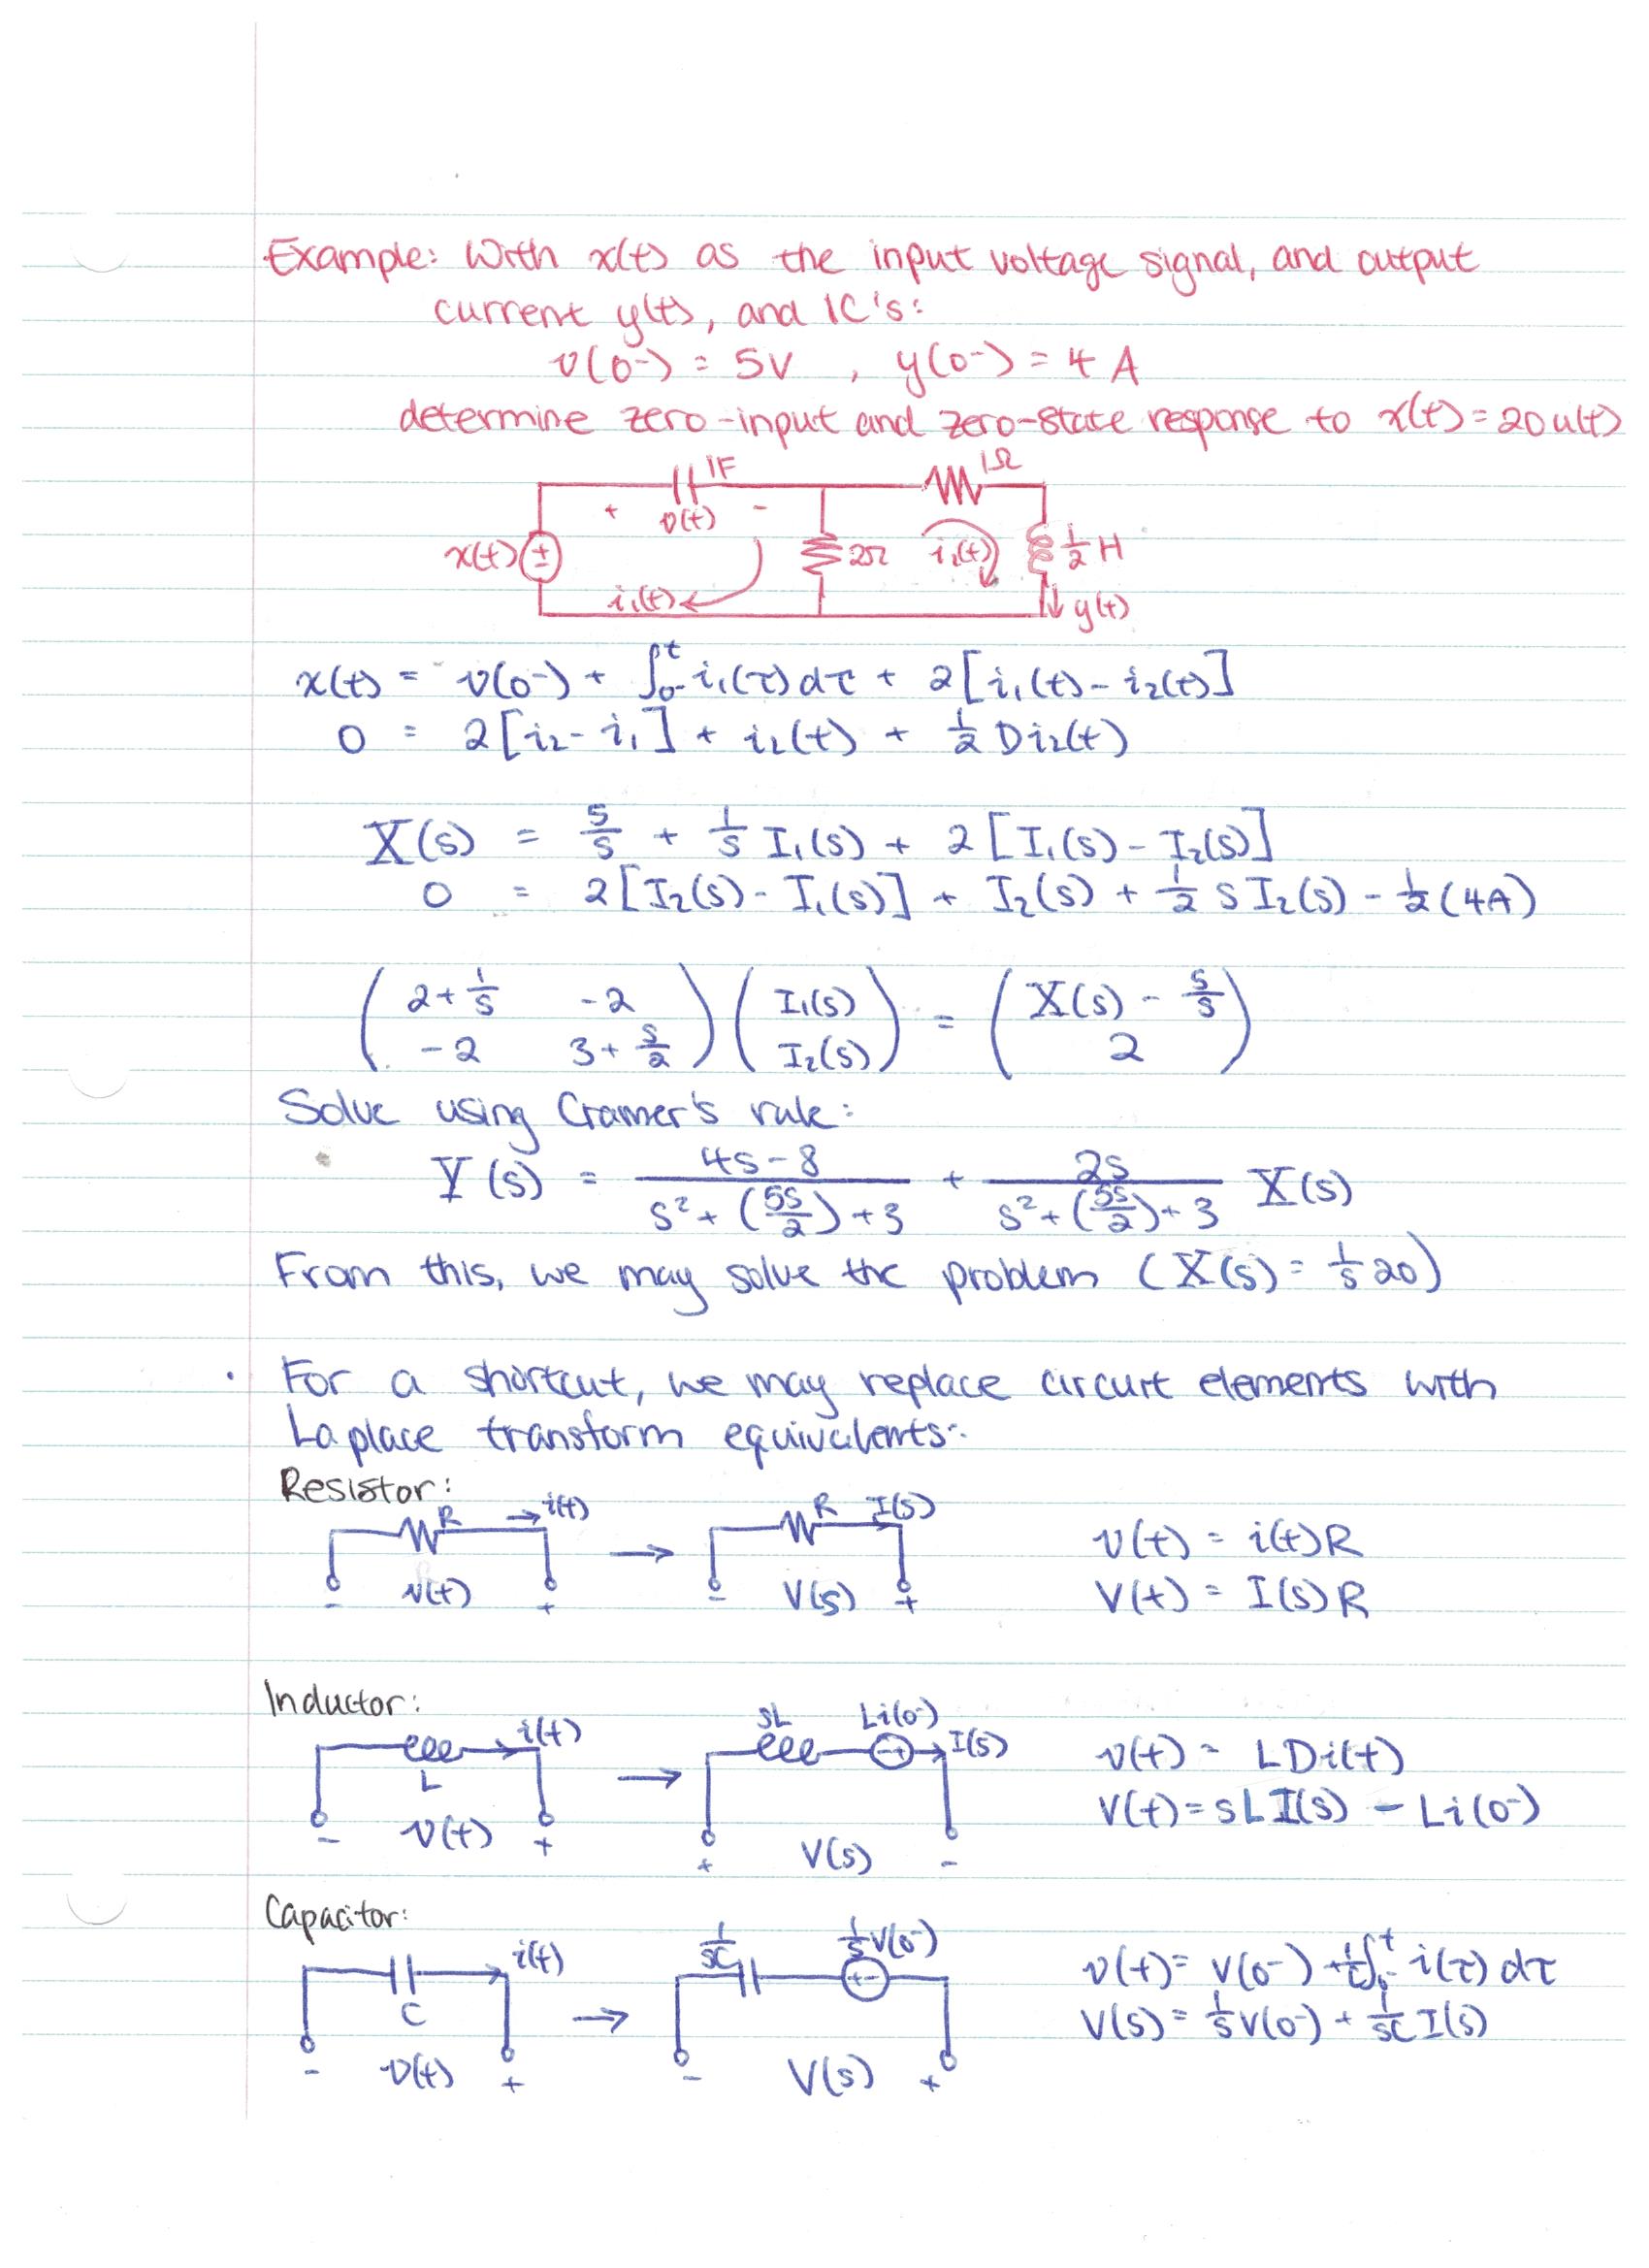 Example: With x(t) as the input voltage signal, and output
current y(t), and IC's:
v(0⁻) = 5V , y(0⁻) = 4 A
determine zero-input and zero-state response to x(t) = 20u(t)
1F 1Ω
+ v(t) -
x(t) + - 2Ω i₂(t) 1/2 H
i₁(t) y(t)
x(t) = v(0⁻) + ∫₀₋ᵗ i₁(τ)dτ + 2[i₁(t) - i₂(t)]
0 = 2[i₂ - i₁] + i₂(t) + 1/2 Di₂(t)
X(s) = 5/s + 1/s I₁(s) + 2[I₁(s) - I₂(s)]
0 = 2[I₂(s) - I₁(s)] + I₂(s) + 1/2 s I₂(s) - 1/2 (4A)
( 2 + 1/s   -2 ) ( I₁(s) ) = ( X(s) - 5/s )
( -2   3 + s/2 ) ( I₂(s) )   ( 2 )
Solve using Cramer's rule:
Y(s) = (4s - 8)/(s² + (5s/2) + 3) + 2s/(s² + (5s/2) + 3) X(s)
From this, we may solve the problem (X(s) = 1/s 20)
· For a shortcut, we may replace circuit elements with
Laplace transform equivalents:
Resistor:
R → i(t) R I(s) v(t) = i(t)R
- v(t) + → - V(s) + V(t) = I(s)R
Inductor:
i(t) sL Li(0⁻) - + I(s) v(t) = LDi(t)
L → V(t) = sLI(s) - Li(0⁻)
- v(t) + + V(s) -
Capacitor:
i(t) 1/sC 1/s v(0⁻) + - v(t) = v(0⁻) + 1/C ∫₀₋ᵗ i(τ) dτ
C → V(s) = 1/s v(0⁻) + 1/sC I(s)
- v(t) + - V(s) +